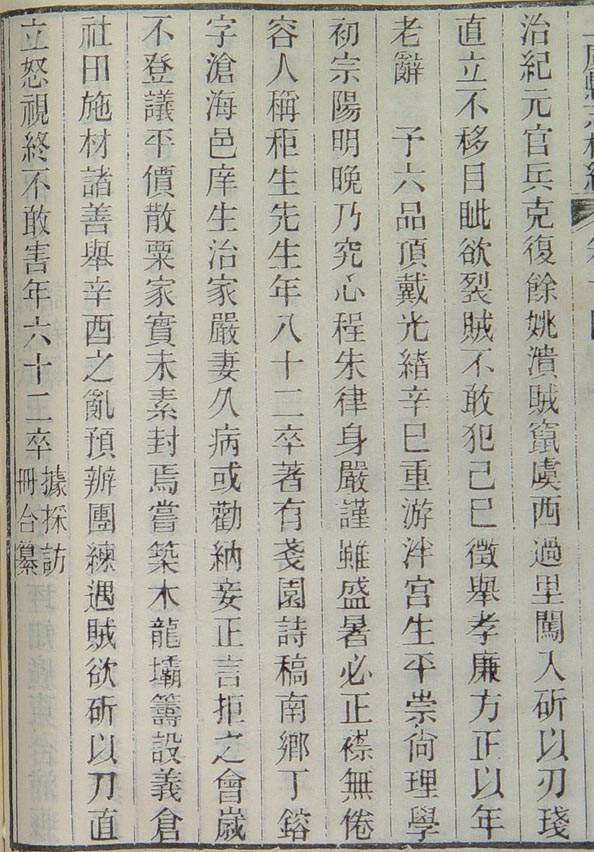 治紀元官兵克復餘姚潰賊竄虞西過里闖入斫以刃琖
直立不移目眦欲裂賊不敢犯己巳徵舉孝廉方正以年
老辭　予六品頂戴光緒辛巳重游泮宮生平崇尙理學
初宗陽明晚乃究心程朱律身嚴謹雖盛暑必正襟無倦
容人稱秬生先生年八十二卒著有戔園詩稿南鄉丁鎔
字滄海邑庠生治家嚴妻久病或勸納妾正言拒之會歲
不登議平價散粟家實未素封焉嘗築木龍壩籌設義倉
社田施材諸善舉辛酉之亂預辦團練遇賊欲斫以刀直
立怒視終不敢害年六十二卒
據採訪
冊合纂